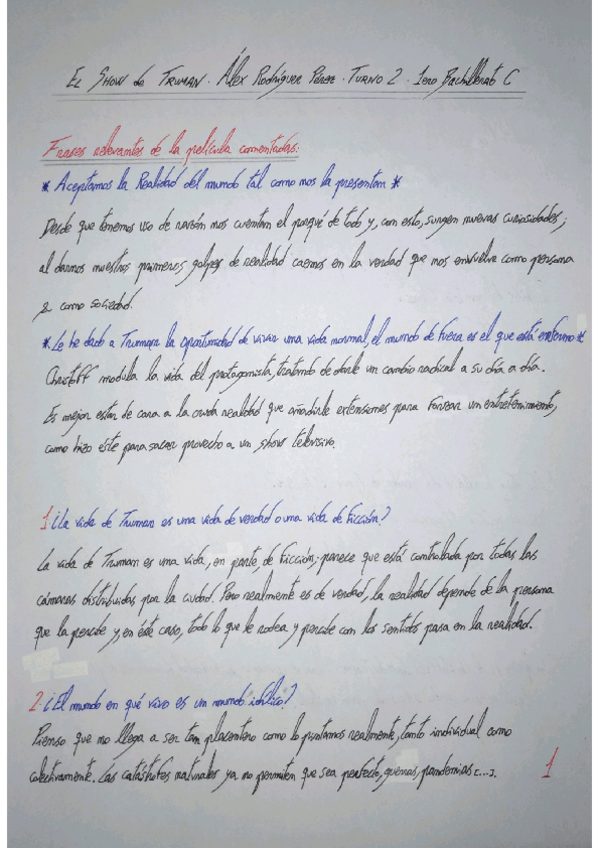 El Show de Truman · Álex Rodríguez Pérez · Turno 2 · 1ero Bachillerato C
Frases relevantes de la película comentadas:
* Aceptamos la Realidad del mundo tal como nos la presentan *
Desde que tenemos uso de razón nos cuentan el porqué de todo y, con esto, surgen nuevas curiosidades;
al darnos nuestros primeros golpes de realidad caemos en la verdad que nos envuelve como persona
y como sociedad.
* Le he dado a Truman la oportunidad de vivir una vida normal, el mundo de fuera es el que está enfermo *
Christoff modula la vida del protagonista, tratando de darle un cambio radical a su día a día.
Es mejor estar de cara a la cruda realidad que añadirle extensiones para forzar un entretenimiento,
como hizo éste para sacar provecho a un show televisivo.
1. ¿La vida de Truman es una vida de verdad o una vida de ficción?
La vida de Truman es una vida, en parte, de ficción; parece que está controlada por todas las
cámaras distribuidas por la ciudad. Pero realmente es de verdad, la realidad depende de la persona
que la percibe y, en éste caso, todo lo que le rodea y percibe con los sentidos pasa en la realidad.
2. ¿El mundo en qué vivo es un mundo idílico?
Pienso que no llega a ser tan placentero como lo pintamos realmente, tanto individual como
colectivamente. Las catástrofes naturales ya no permiten que sea perfecto, guerras, pandemias (...).
1